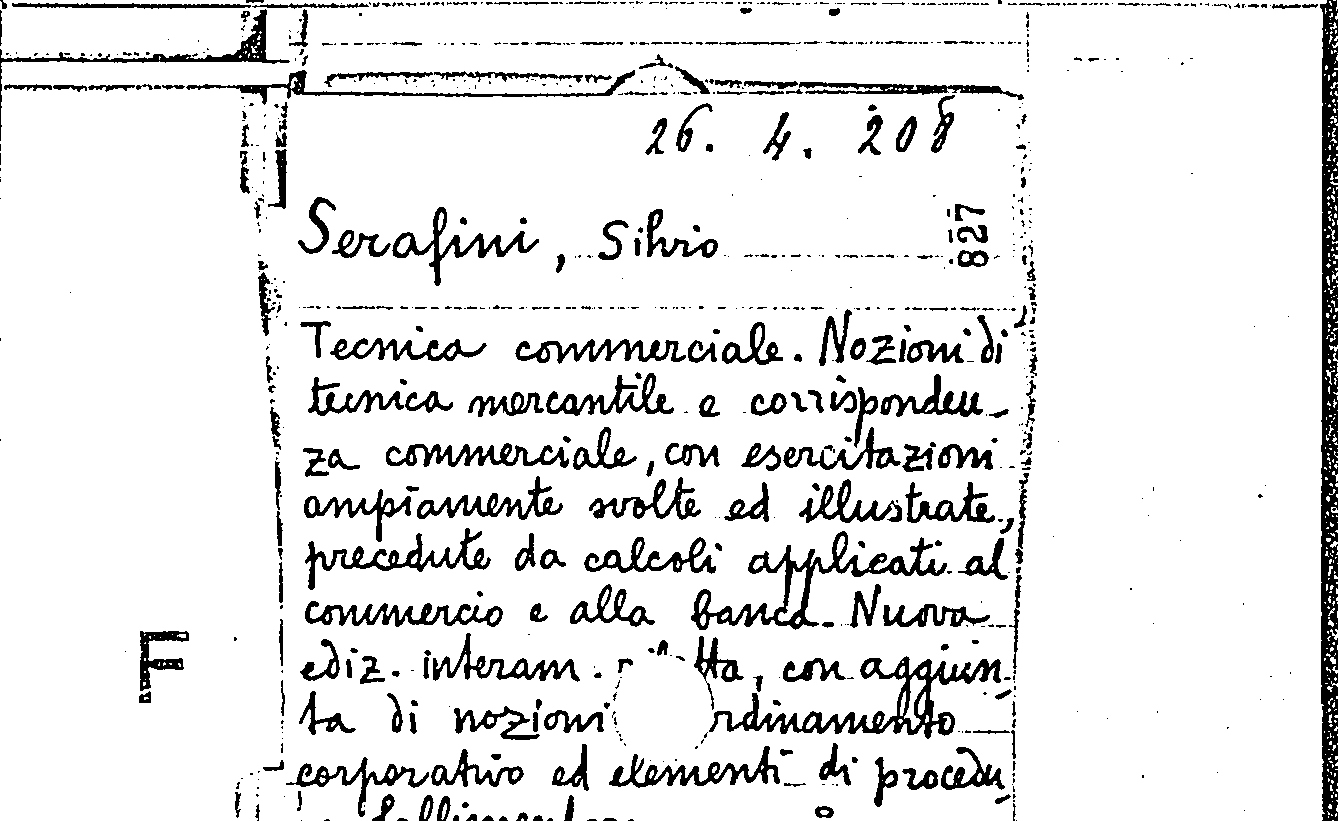 26. 4. 208
Serafini, Silvio
827
Tecnica commerciale. Nozioni di
tecnica mercantile e corrisponden-
za commerciale, con esercitazioni
ampiamente svolte ed illustrate,
precedute da calcoli applicati al
commercio e alla banca. Nuova
ediz. interam. , con aggiun-
ta di nozioni rdinamento
corporativo ed elementi di procedu-
F